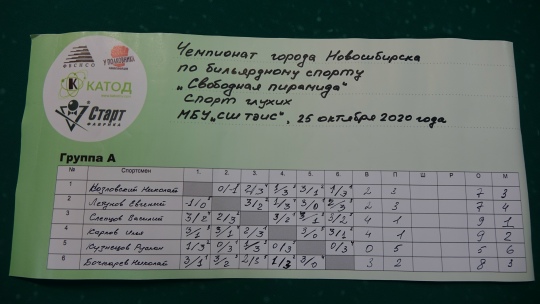 Чемпионат города Новосибирска
по бильярдному спорту
"Свободная пирамида"
Спорт глухих
МБУ "СШ ТВИС", 25 октября 2020 года
К КАТОД
Старт
ФАБРИКА
Группа А
№ Спортсмен 1. 2. 3. 4. 5. 6. В П О М
1 Козловский Николай 0/-1 2/3 1/3 3/1 1/3 2 3 7 3
2 Летунов Евгений -1/0 3/2 1/3 3/0 2/3 2 3 7 4
3 Слепцов Василий 3/2 2/3 3/2 3/1 3/2 4 1 9 1
4 Карпов Илья 3/1 3/1 2/3 3/0 3/1 4 1 9 2
5 Кузнецов Руслан 1/3 0/3 1/3 0/3 0/3 0 5 5 6
6 Бочкарев Николай 3/1 3/2 2/3 1/3 3/0 3 2 8 3